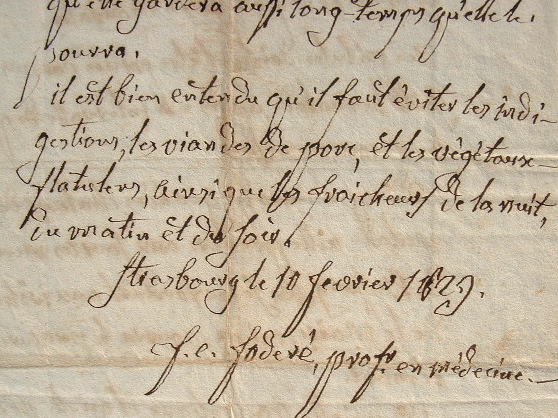 qu'elle gardera aussi long-temps qu'elle le
pourra.
il est bien entendu qu'il faut éviter les indi-
gestions, les viandes de porc, et les végétaux
flatulens, ainsi que les fraicheurs de la nuit,
du matin et du soir.
Strasbourg le 10 fevrier 1829.
f. e. foderé, profr. en médecine.